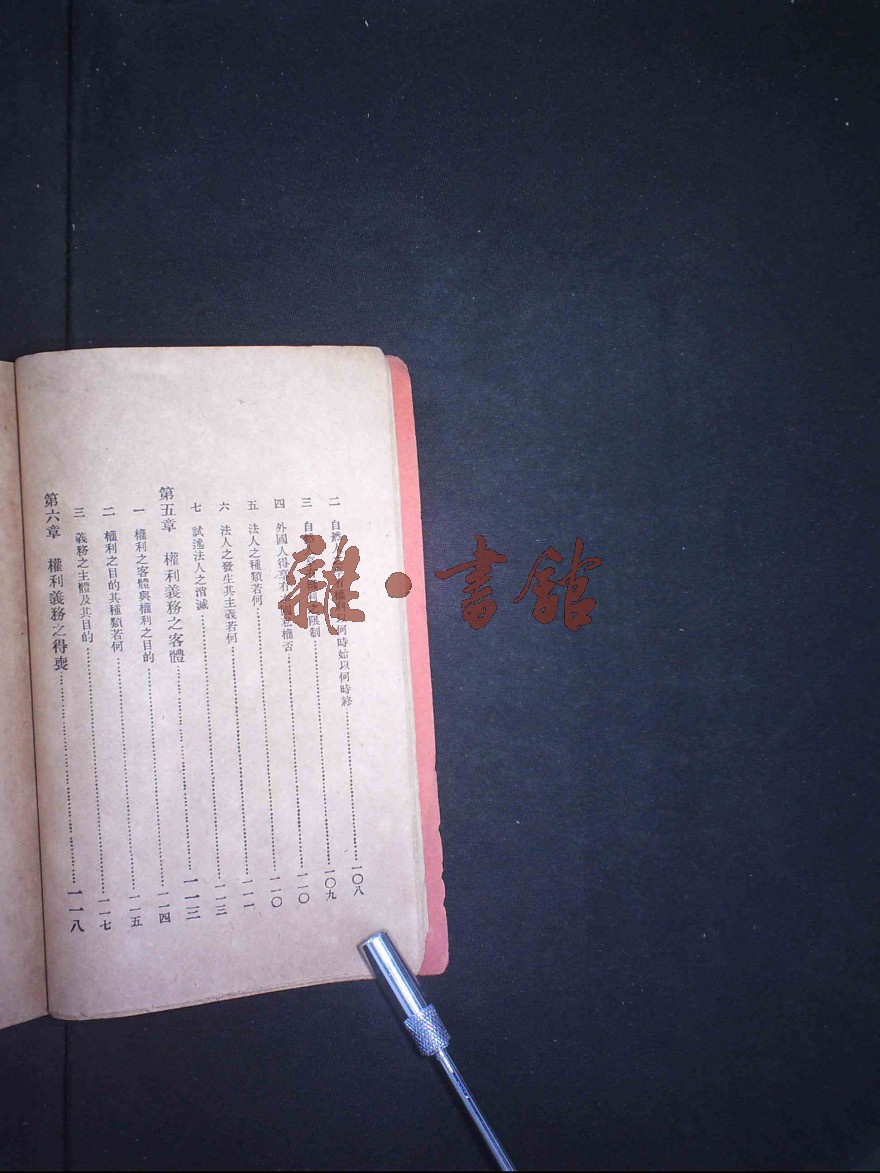 二 自然人 權利以何時始以何時終……一〇八
三 自 之限制……一〇九
四 外國人得享有 私權否……一一〇
五 法人之種類若何……一一〇
六 法人之發生其主義若何……一一一
七 試述法人之消滅……一一三
第五章 權利義務之客體……一一三
一 權利之客體與權利之目的……一一四
二 權利之目的其種類若何……一一五
三 義務之主體及其目的……一一七
第六章 權利義務之得喪……一一八
雜·書館